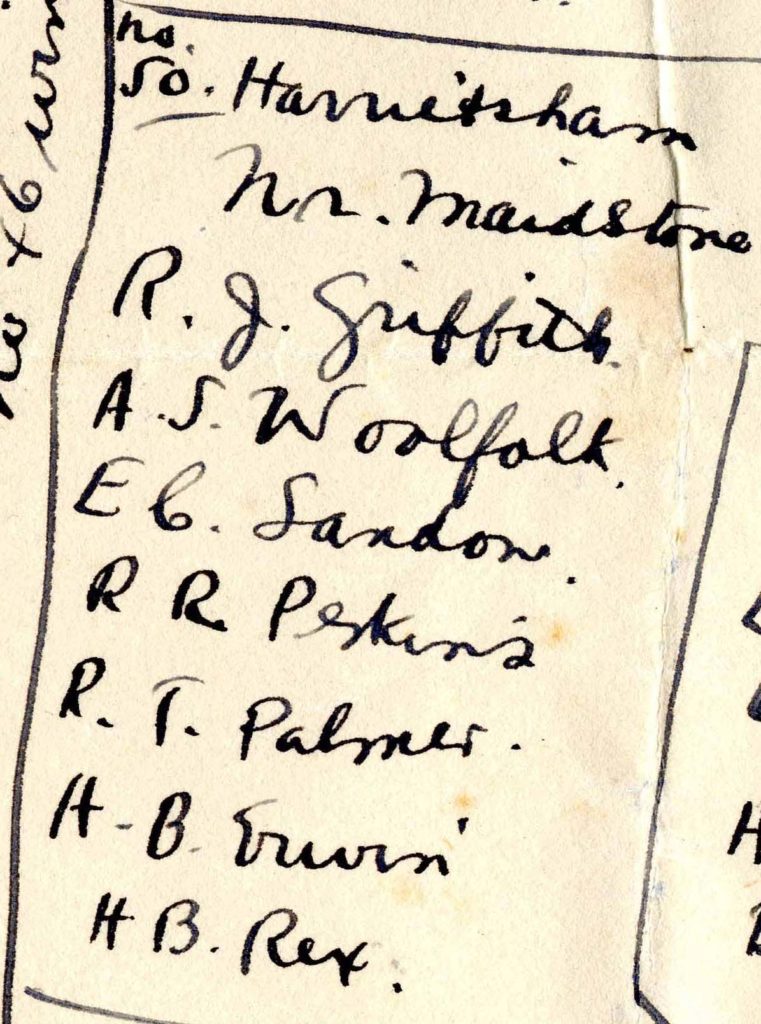 no.
50. Harrietsham
Nr. Maidstone
R. J. Griffith.
A. S. Woolfolk.
E C. Sandow.
R R. Perkins
R. T. Palmer.
H. B. Erwin
H B. Rex.